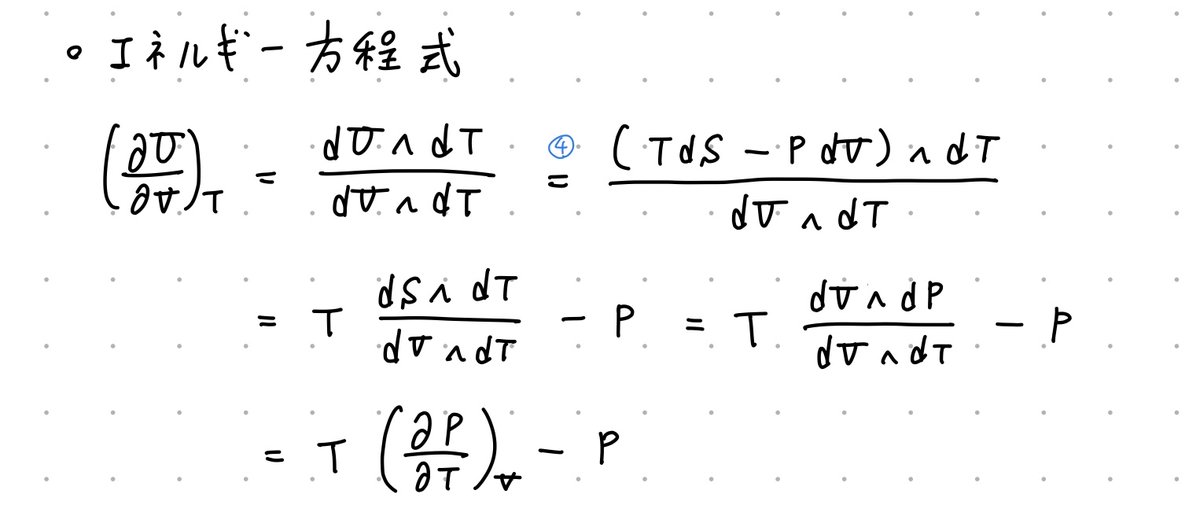 • エネルギー方程式
(∂U/∂V)_T = (dU ∧ dT)/(dV ∧ dT) ④= ((TdS − PdV) ∧ dT)/(dV ∧ dT)
= T (dS ∧ dT)/(dV ∧ dT) − P = T (dV ∧ dP)/(dV ∧ dT) − P
= T (∂P/∂T)_V − P